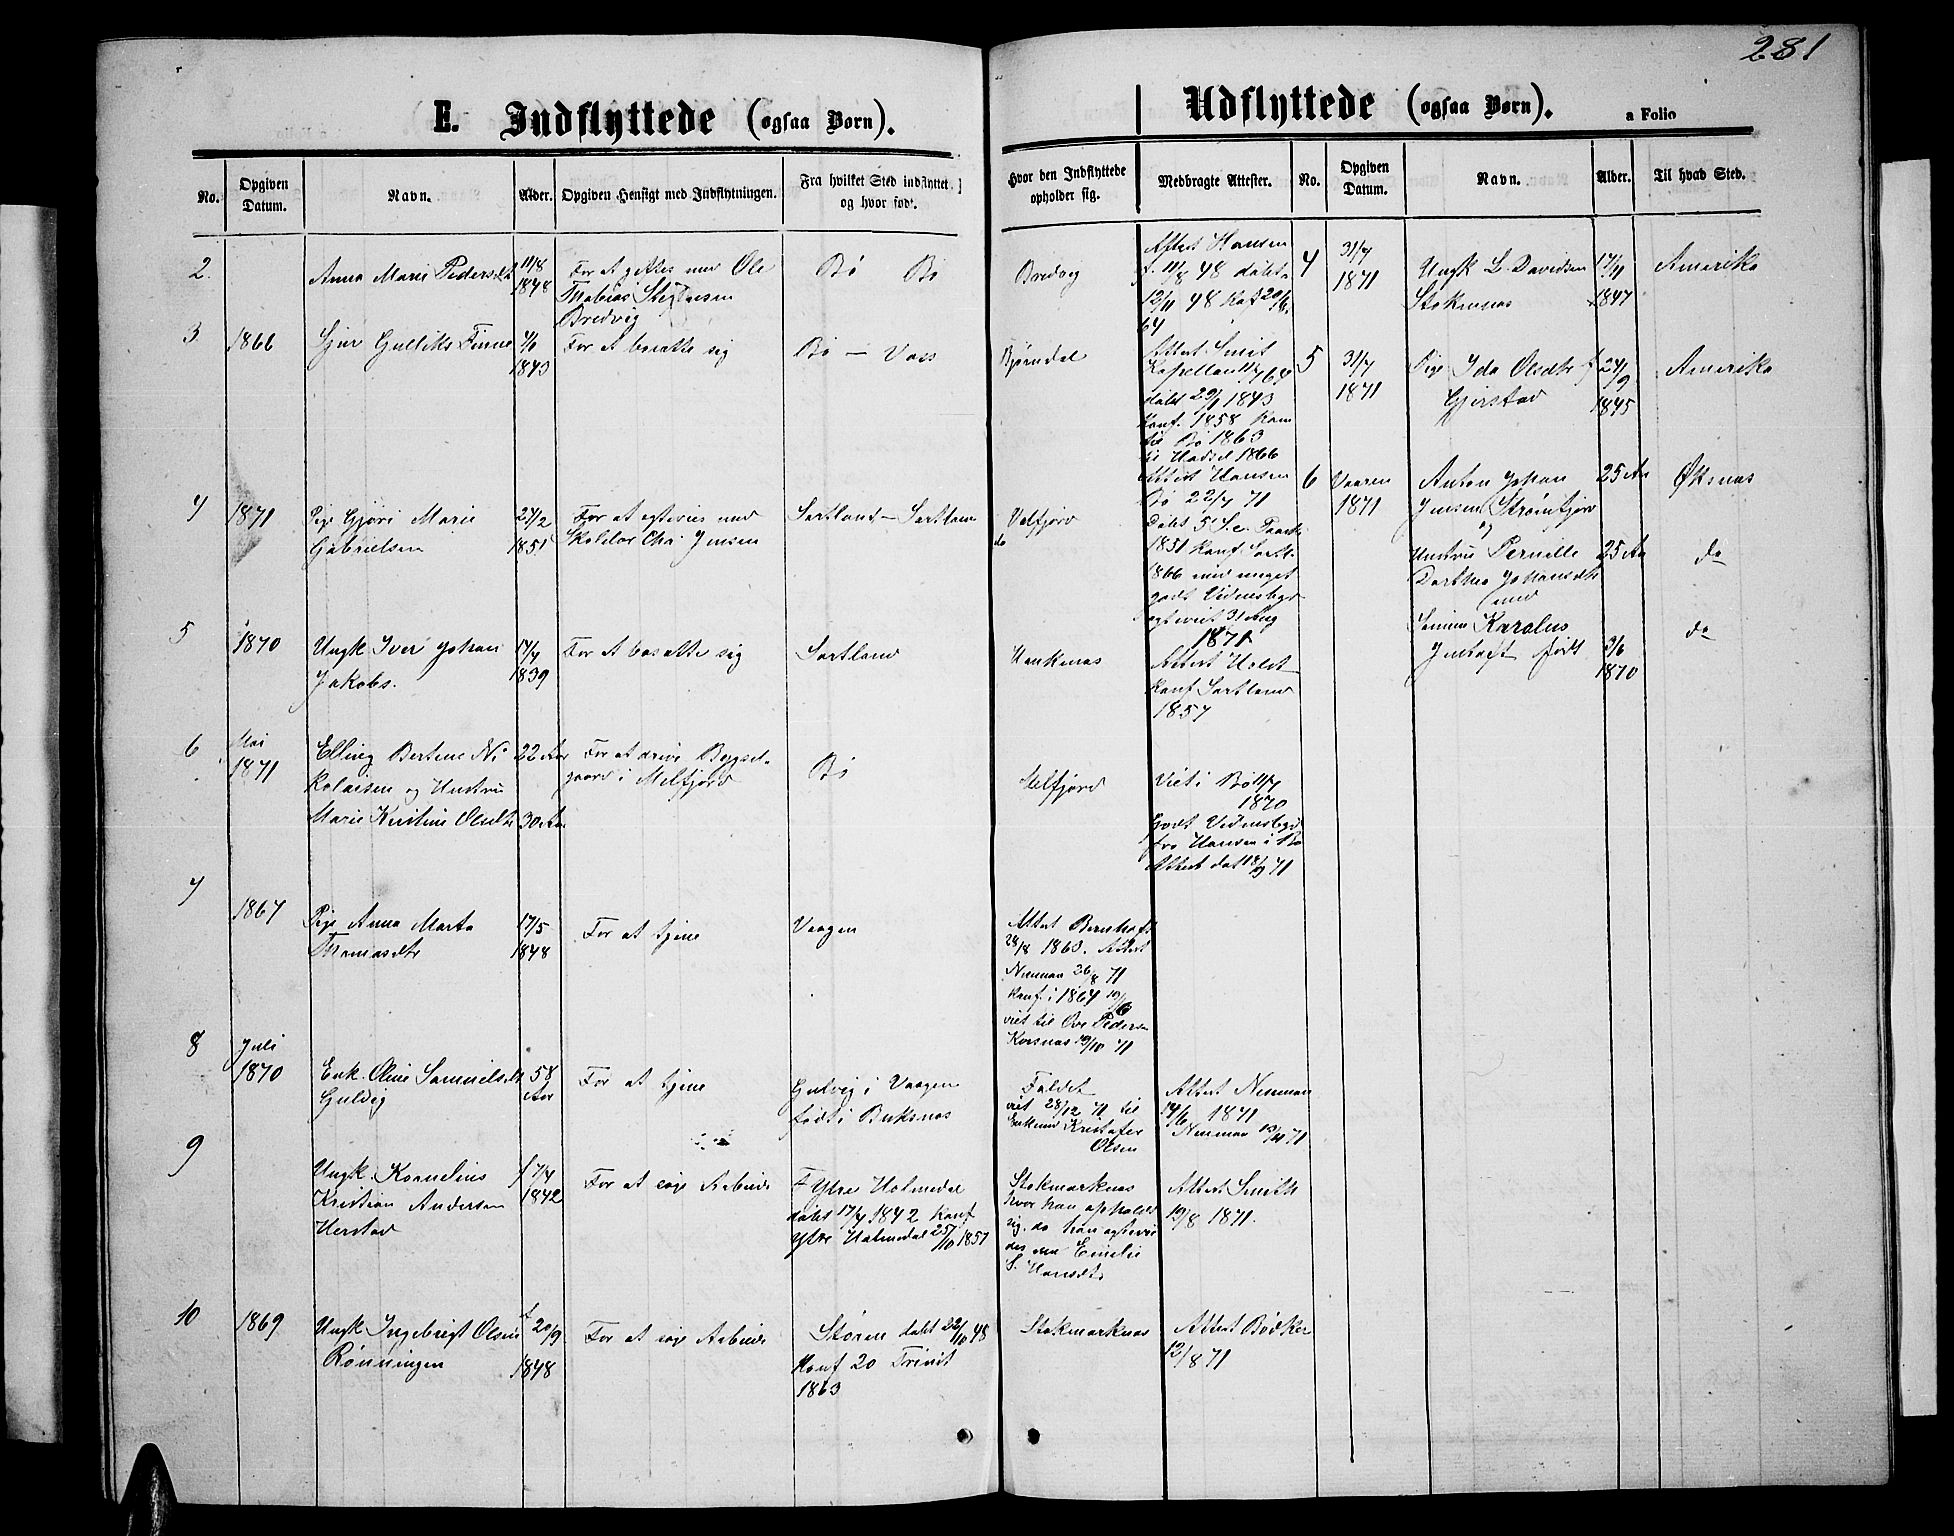 281
E. Indflyttede (ogsaa Børn).
Udflyttede (ogsaa Børn).
a Folio
No.
Opgiven Datum.
Navn.
Alder.
Opgiven Hensigt med Indflytningen.
Fra hvilket Sted indflyttet, og hvor født.
Hvor den Indflyttede opholder sig.
Medbragte Attester.
No.
Opgiven Datum.
Navn.
Alder.
Til hvad Sted.
2.
Anna Marie Pedersdt
11/8
1848
For at giftes med Ole
Tobias
Bredvig
Bø Bø
Bredvig
Attest Hansen
f. 11/8 48 døbt
12/11 48 Konf
64
3
1866
Sjur Gulliks Finne
1843
For at bosætte sig
Bø — Voss
Bjørndal
Attest Smit
Kapellan
døbt 29/1 1843
Konf. 1858 kom
til Bø 1863
til Hadsel 1866
4
1871
Pige Gjøri Marie
Gabrielsen
27/2
1851
For at ægtevies med
Skolelær Chr. Jensen
Sortland — Sortland
Attest Hansen
Bø 22/7 71
Døbt 5 S. e. Paaske
1851 Konf. Sortl.
1866 med meget
godt Vidnesbyrd
ægteviet 31 Aug
1871
5
1870
Ungk Iver Johan
Jakobs.
1839
For at bosætte sig
Sortland
Haukenæs
Attest Holst
Konf Sortland
1857
6
Mai
1871
Elling Bertine Ni-
kolaisen og Hustru
Marie Kirstine Olsdtr
22 Aar
30 Aar
For at drive Bygsel-
gaard i Melfjord
Bø
Melfjord
Viet i Bø 11/7
1870
Godt Vidnesbyrd
fra Hansen i Bø
Attest dat 18/9 71
7
1867
Pige Anna Marta
Thomasdtr
17/5
1848
For at tjene
Vaagen
Attest Bernhoft
28/8 1863. Attest
Neuman 26/8 71
Konf. i 1864
viet til Ove Pedersen
Korsnæs 19/10 71
8
Juli
1870
Enk. Oline Samuelsdt
Gulvig
58
Aar
For at tjene
Gulvig i Vaagen
født i Buksnæs
Faldet
viet 28/12 71 til
Enkemd Kristofer
Olsen
Attest Neuman
14/6 1871
Neuman
9
Ungk. Kornelius
Kristian Andersen
Herstad
f 7/4
1842
For at søge Arbeide
F Ytre Holmedal
døbt 17/4 1842 Konf
Ytre Holmedal 25/10 1857
Stokmarknæs
hvor han opholdt
sig, da han ægtevie-
des med Emilie
S. Hansdt.
Attest Smith
19/8 1871.
10
1869
Ungk Ingebrigt Olsen
Rønningen
f 20/9
1848
For at søge Arbeide
Støren døbt 22/10 48
Konf 20 Trinit
1863
Stokmarknæs
Attest Bødker
12/8 71
4
31/7
1871
Ungk L. Davidsen
Stokmnæs
17/11
1847
Amerika
5
31/7
1871
Pige Ida Olsdtr
Gjerstad
f 24/9
1845
Amerika
6
Vaaren
1871
Anton Johan
Jensen Strømfjord
og
Hustru Pernille
Dorthea Johansdtr
med
Sønnen Karolus
Jentoft født
25 Aar
25 Aar
3/6
1870
Øksnæs
do
do